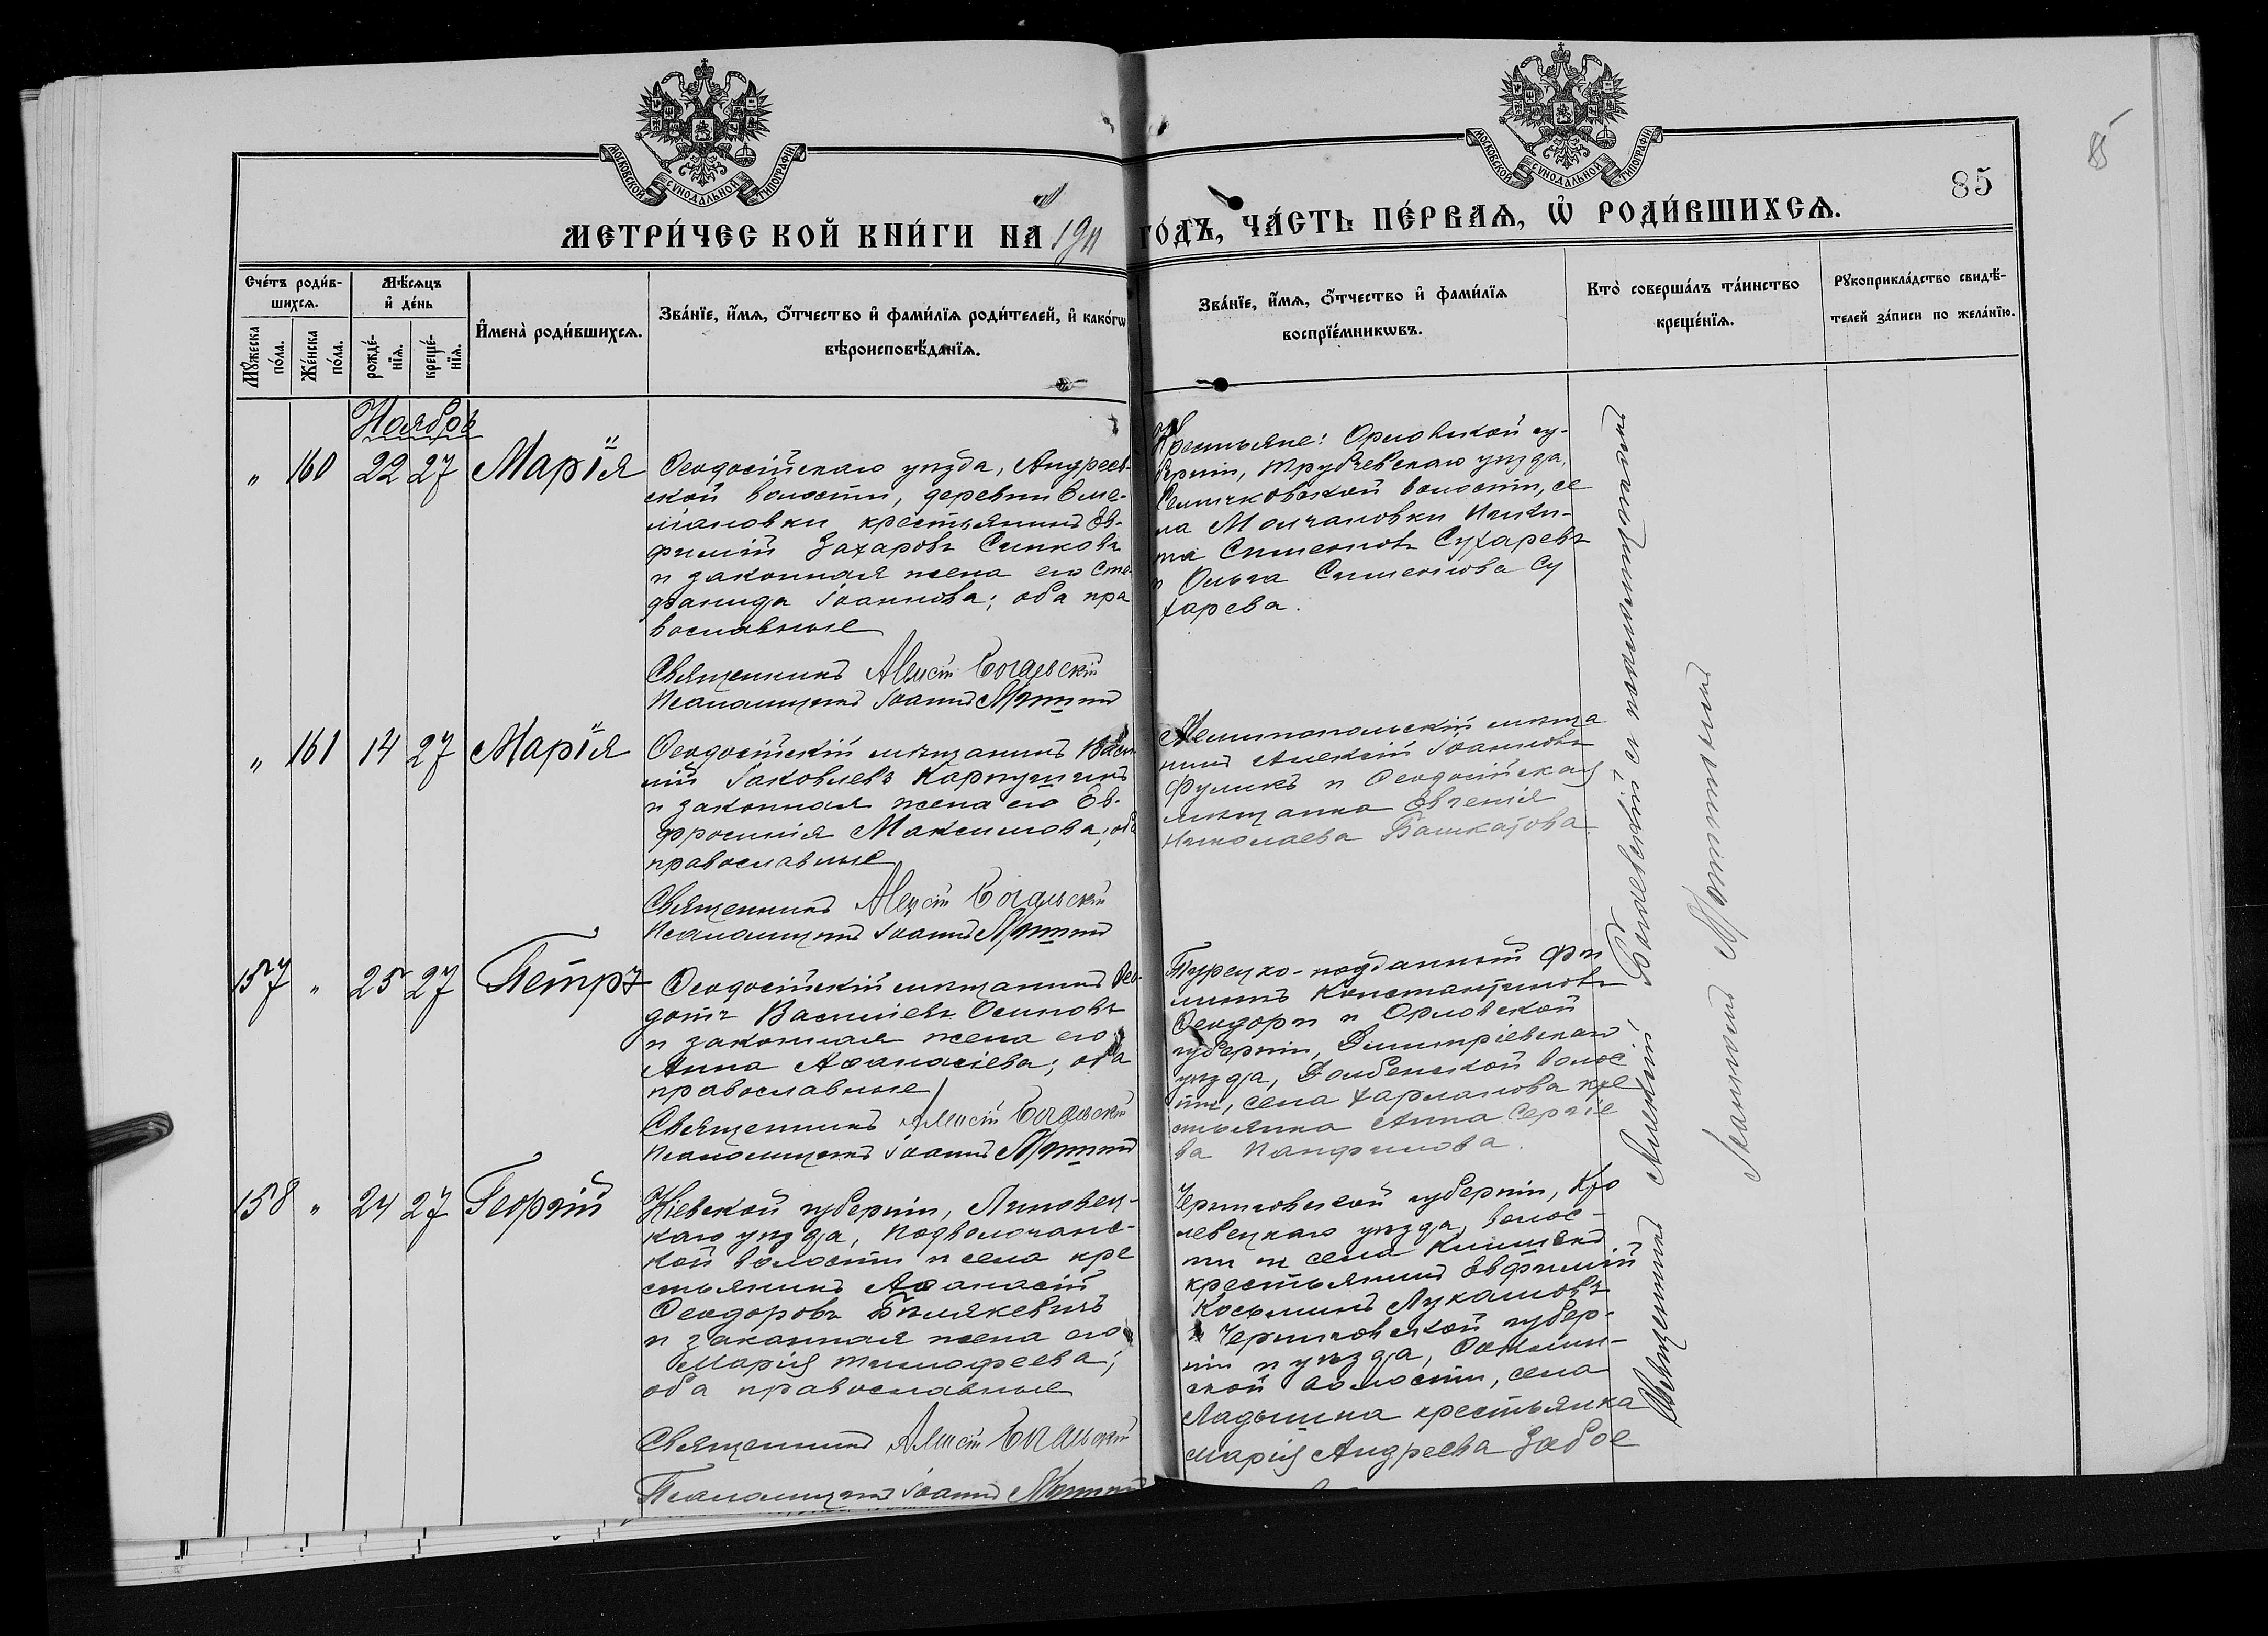 МОСКОВСКОЙ СѴНОДАЛЬНОЙ ТИПОГРАФІИ
МОСКОВСКОЙ СѴНОДАЛЬНОЙ ТИПОГРАФІИ
85
85
МЕТРИ́ЧЕСКОЙ КНИ́ГИ НА 1911 ГО́ДЪ, ЧА́СТЬ ПЕ́РВАѦ, Ѡ҆ РОДИ́ВШИХСѦ.
Сче́тъ роди́в-
шихсѧ.
Мꙋ́жеска
по́ла.
Же́нска
по́ла.
Мѣ́сѧцъ
и҆ де́нь
рожде́-
нїѧ.
креще́-
нїѧ.
И҆мена̀ роди́вшихсѧ.
Зва́нїе, и҆́мѧ, ѻ҆́тчество и҆ фами́лїѧ роди́телей, и҆ како́гѡ
вѣроисповѣ́данїѧ.
Зва́нїе, и҆́мѧ, ѻ҆́тчество и҆ фами́лїѧ
воспрїе́мникѡвъ.
Кто̀ соверша́лъ та́инство
креще́нїѧ.
Рꙋкоприкла́дство свидѣ́-
телей за́писи по жела́нїю.
Ноябрь
" 160 22 27 Марія
Ѳеодосійскаго уѣзда, Андреев-
ской волости, деревни Еме-
льяновки крестьянинъ Ев-
фимій Захаровъ Симковъ
и законная жена его Сте-
фанида Іоаннова; оба пра
вославные
Священникъ Алексій Богаевскій
Псаломщикъ Іоаннъ
Крестьяне: Орловской гу-
берніи, Трубчевскаго уѣзда,
Селичковской волости, се
ла Молчановки Ники-
та Симеоновъ Сухаревъ
и Ольга Симеонова Су
харева.
" 161 14 27 Марія
Ѳеодосійскій мѣщанинъ Васи
лій Іаковлевъ Карпушинъ
и законная жена его Ев-
фросинія Максимова; оба
православные
Священникъ Алексій Богаевскій
Псаломщикъ Іоаннъ
Мелитопольскій мѣща
нинъ Алексій Іоанновъ
Фуликъ и Ѳеодосійская
мѣщанка Евгенія
Николаева Башкатова
157 " 25 27 Петръ
Ѳеодосійскій мѣщанинъ Ѳео-
дотъ Васильевъ Осиповъ
и законная жена его
Анна Аѳанасіева; оба
православные
Священникъ Алексій Богаевскій
Псаломщикъ Іоаннъ
Турецко-подданный Фи
липпъ Константиновъ
Ѳеодори и Орловской
губерніи, Димитріевскаго
уѣзда, Долбенской волос
ти, села Харланова кре
стьянка Анна Сергіе
ва Панфилова.
158 " 24 27 Георгій
Кіевской губерніи, Липовец-
каго уѣзда, Подволочанс-
кой волости и села кре
стьянинъ Аѳанасій
Ѳеодоровъ Билякевичъ
и законная жена его
Марія Тимофеева;
оба православные
Священникъ Алексій Богаевскій
Псаломщикъ Іоаннъ
Черниговской губерніи, Кро
левецкаго уѣзда, волос-
ти и села
крестьянинъ Евфимій
Косьминъ Лукашовъ
и Черниговской губер-
ніи и уѣзда,
ской волости, села
Ладынка крестьянка
Марія Андреева Забое
Священникъ Алексій Богаевскій съ псаломщикомъ
Іоанномъ